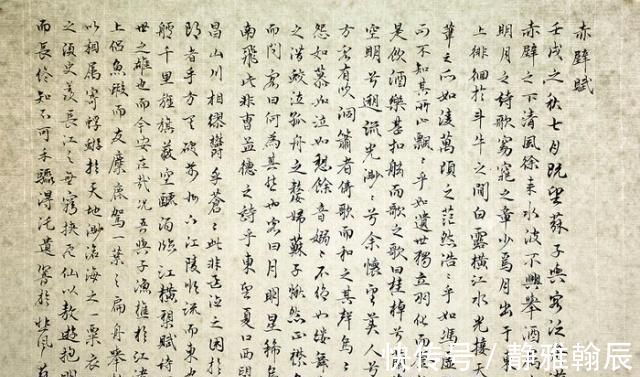 赤壁賦
壬戌之秋七月既望蘇子與客泛
赤壁之下清風徐来水波不興舉酒
明月之詩歌窈窕之章少焉月出于東
上徘徊於斗牛之間白露横江水光接天
葦之所如凌萬頃之茫然浩乎如馮虛
而不知其所止飄〻乎如遺世獨立羽化而
是飲酒樂甚扣舷而歌之歌曰桂棹兮
空明兮遡流光渺〻兮余懷望美人兮
方客有吹洞簫者倚歌而和之其聲烏〻
怨如慕如泣如愬餘音嫋〻不絕如縷舞
之潛蛟泣孤舟之嫠婦蘇子愀然正襟
而問客曰何為其然也客曰月明星稀烏
南飛此非曹孟德之詩乎東望夏口西望
昌山川相繆鬱乎蒼〻此非孟德之困於
郎者乎方其破荊州下江陵順流而東也
艫千里旌旗蔽空釃酒臨江橫槊賦詩
世之雄也而今安在哉況吾與子漁樵於江渚
上侶魚蝦而友麋鹿駕一葉之扁舟舉
以相屬寄蜉蝣於天地渺滄海之一粟哀
之須臾羨長江之無窮挾飛仙以敖遊抱明
而長終知不可乎驟得託遺響於悲風蘇
快传号 / 静雅翰辰